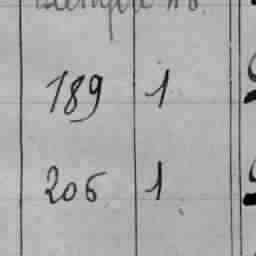 189 1
206 1